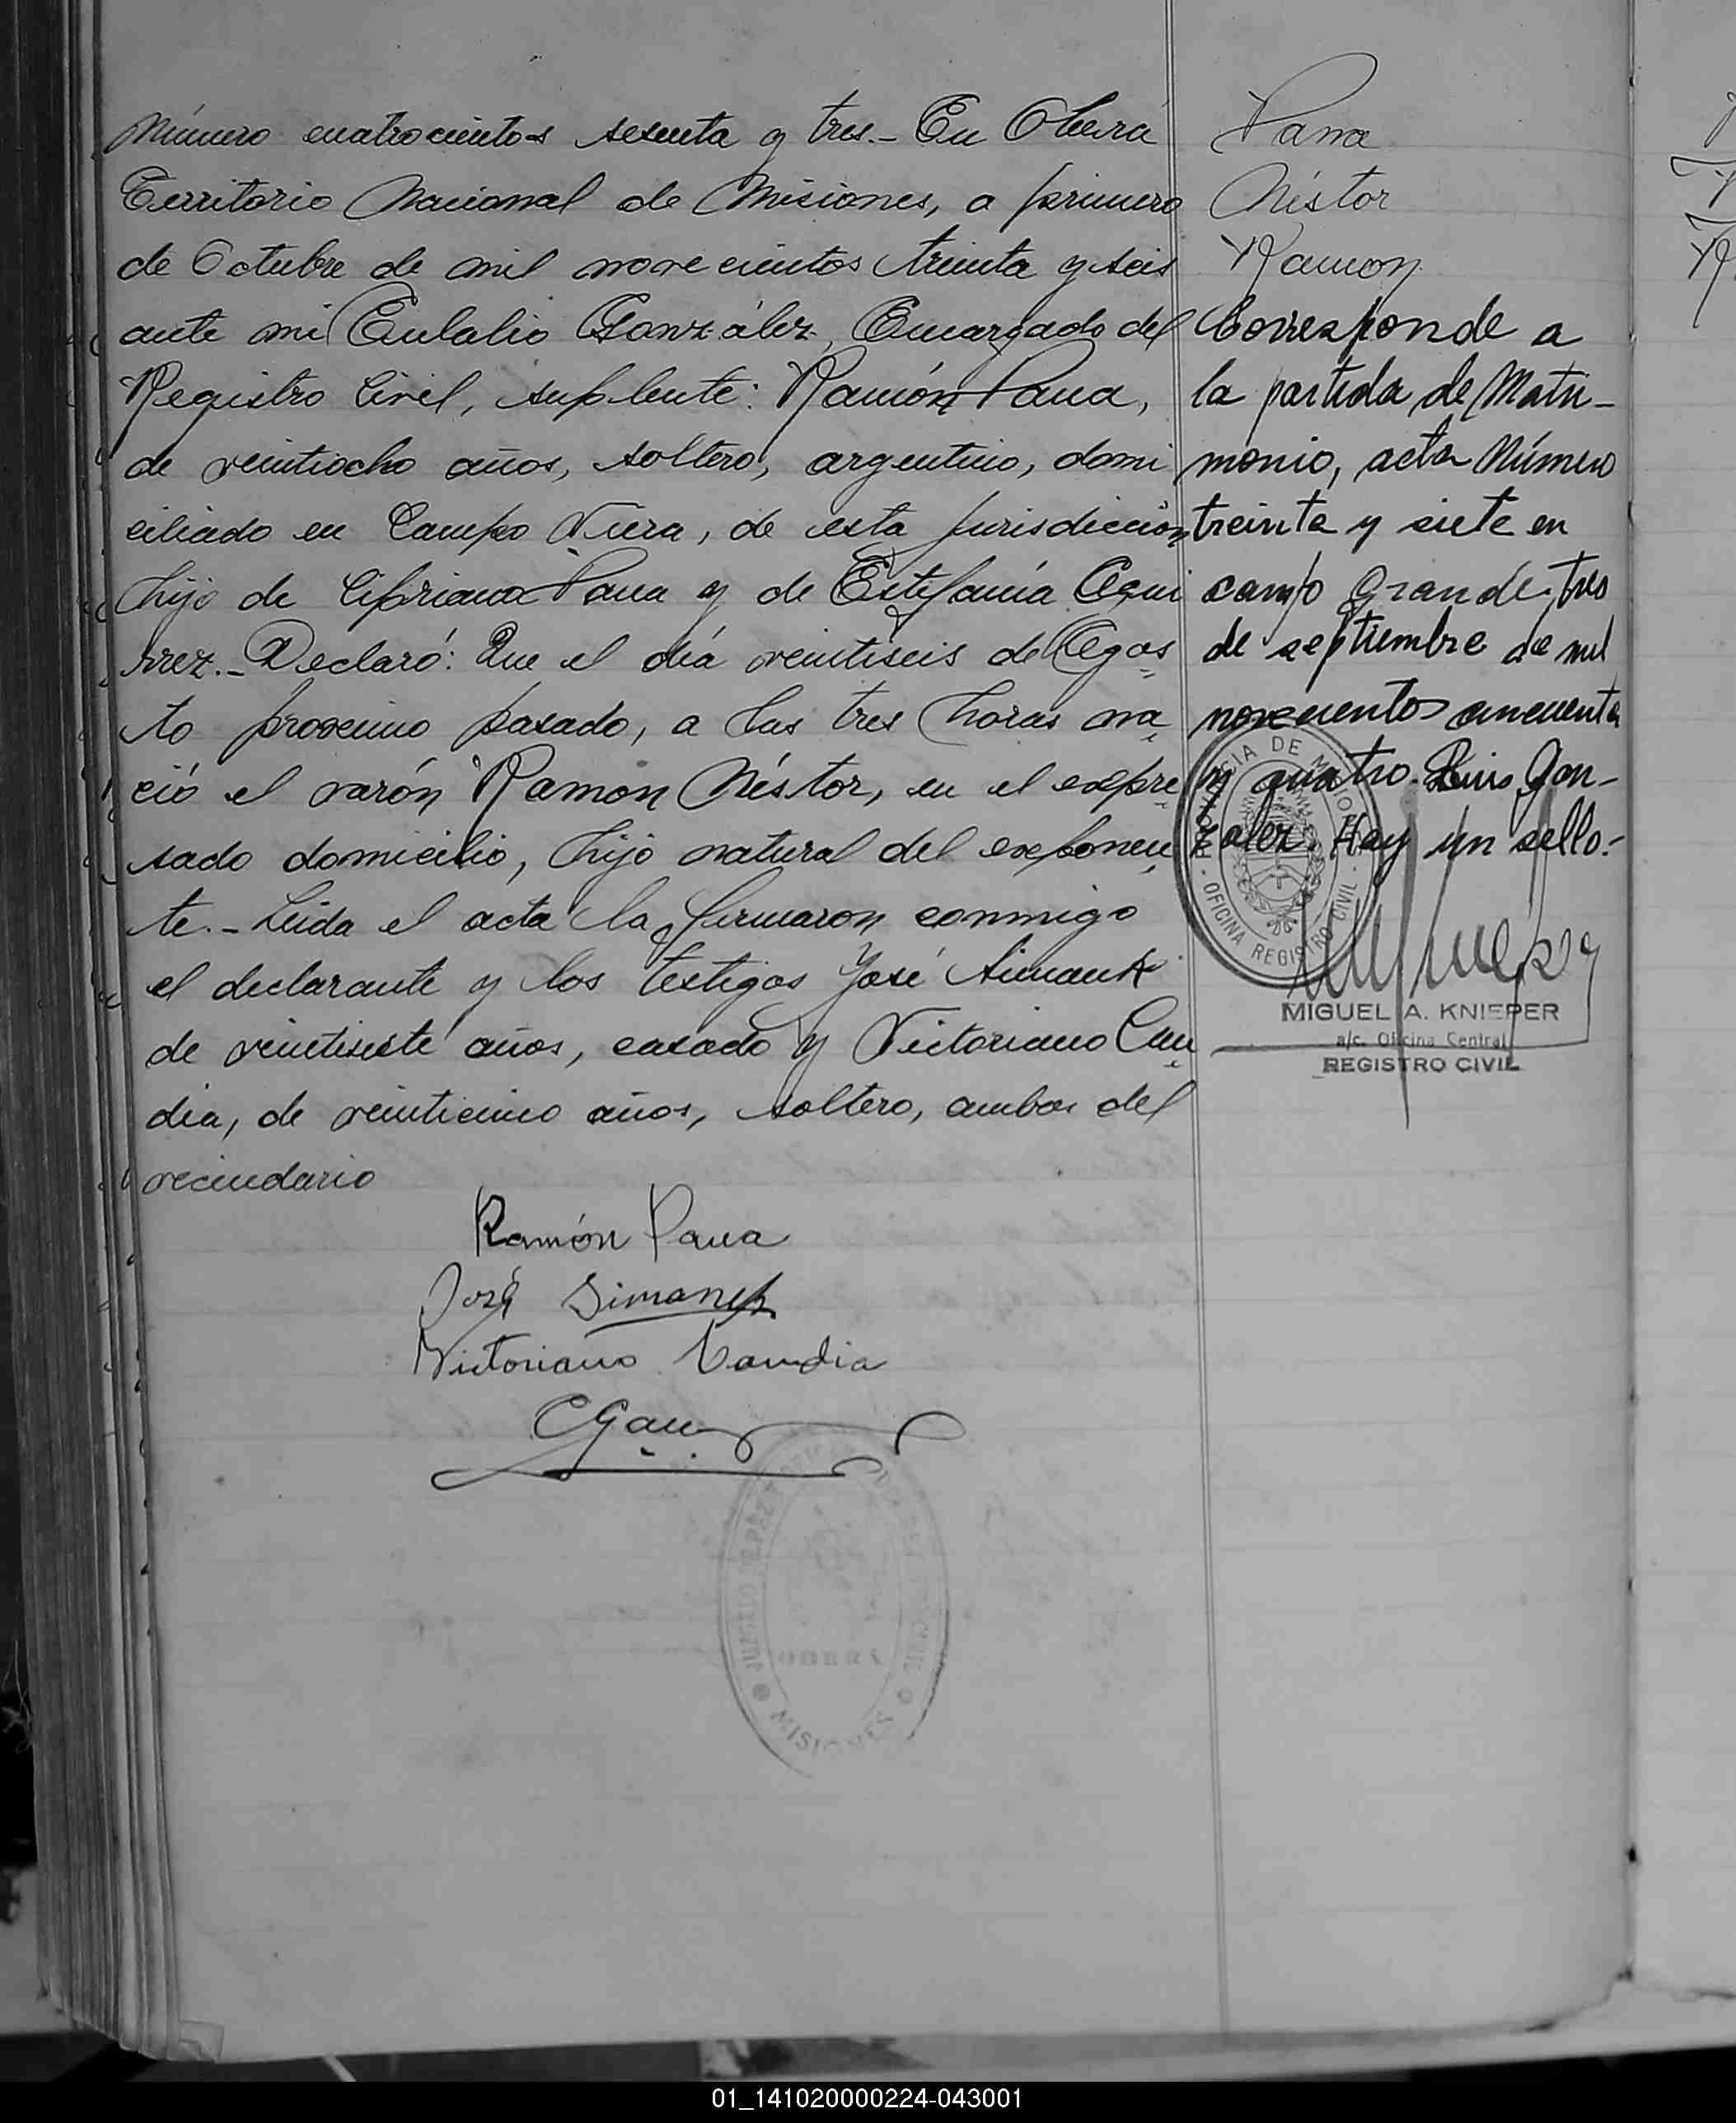 Número cuatrocientos sesenta y tres.- En Oberá
Territorio Nacional de Misiones, a primero
de Octubre de mil novecientos treinta y seis
ante mi Eulalio González, Encargado del
Registro Civil, suplente: Ramón Paua,
de veintiocho años, soltero, argentino, domi
ciliado en Campo Viera, de esta jurisdicción
hijo de Cipriana Paua y de Estefanía Agui
rrez.- Declaró: Que el día veintiseis de Agos
to proximo pasado, a las tres horas na
ció el varón Ramon Néstor, en el expre
sado domicilio, hijo natural del exponen
te.- Leida el acta la firmaron conmigo
el declarante y los testigos José Simank
de veintisiete años, casado y Victoriano Can
dia, de veinticinco años, soltero, ambos del
vecindario
Ramón Paua
José Simanek
Victoriano Candia
EGonz
JUZGADO DE PAZ
OBERÁ
MISIONES
Paua
Néstor
Ramon
Corresponde a
la partida de Matri-
monio, acta Número
treinta y siete en
campo Grande, tres
de septiembre de mil
novecientos cincuenta
y cuatro. Luis Gon-
zalez. Hay un sello.-
PROVINCIA DE MISIONES
OFICINA REGISTRO CIVIL
MIGUEL A. KNIEPER
a/c. Oficina Central
REGISTRO CIVIL
01_141020000224-043001